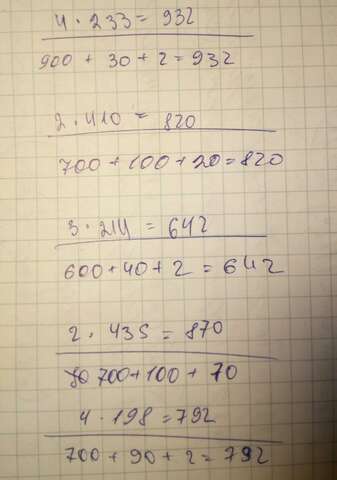 4 · 233 = 932
900 + 30 + 2 = 932
2 · 410 = 820
700 + 100 + 20 = 820
3 · 214 = 642
600 + 40 + 2 = 642
2 · 435 = 870
700 + 100 + 70
4 · 198 = 792
700 + 90 + 2 = 792